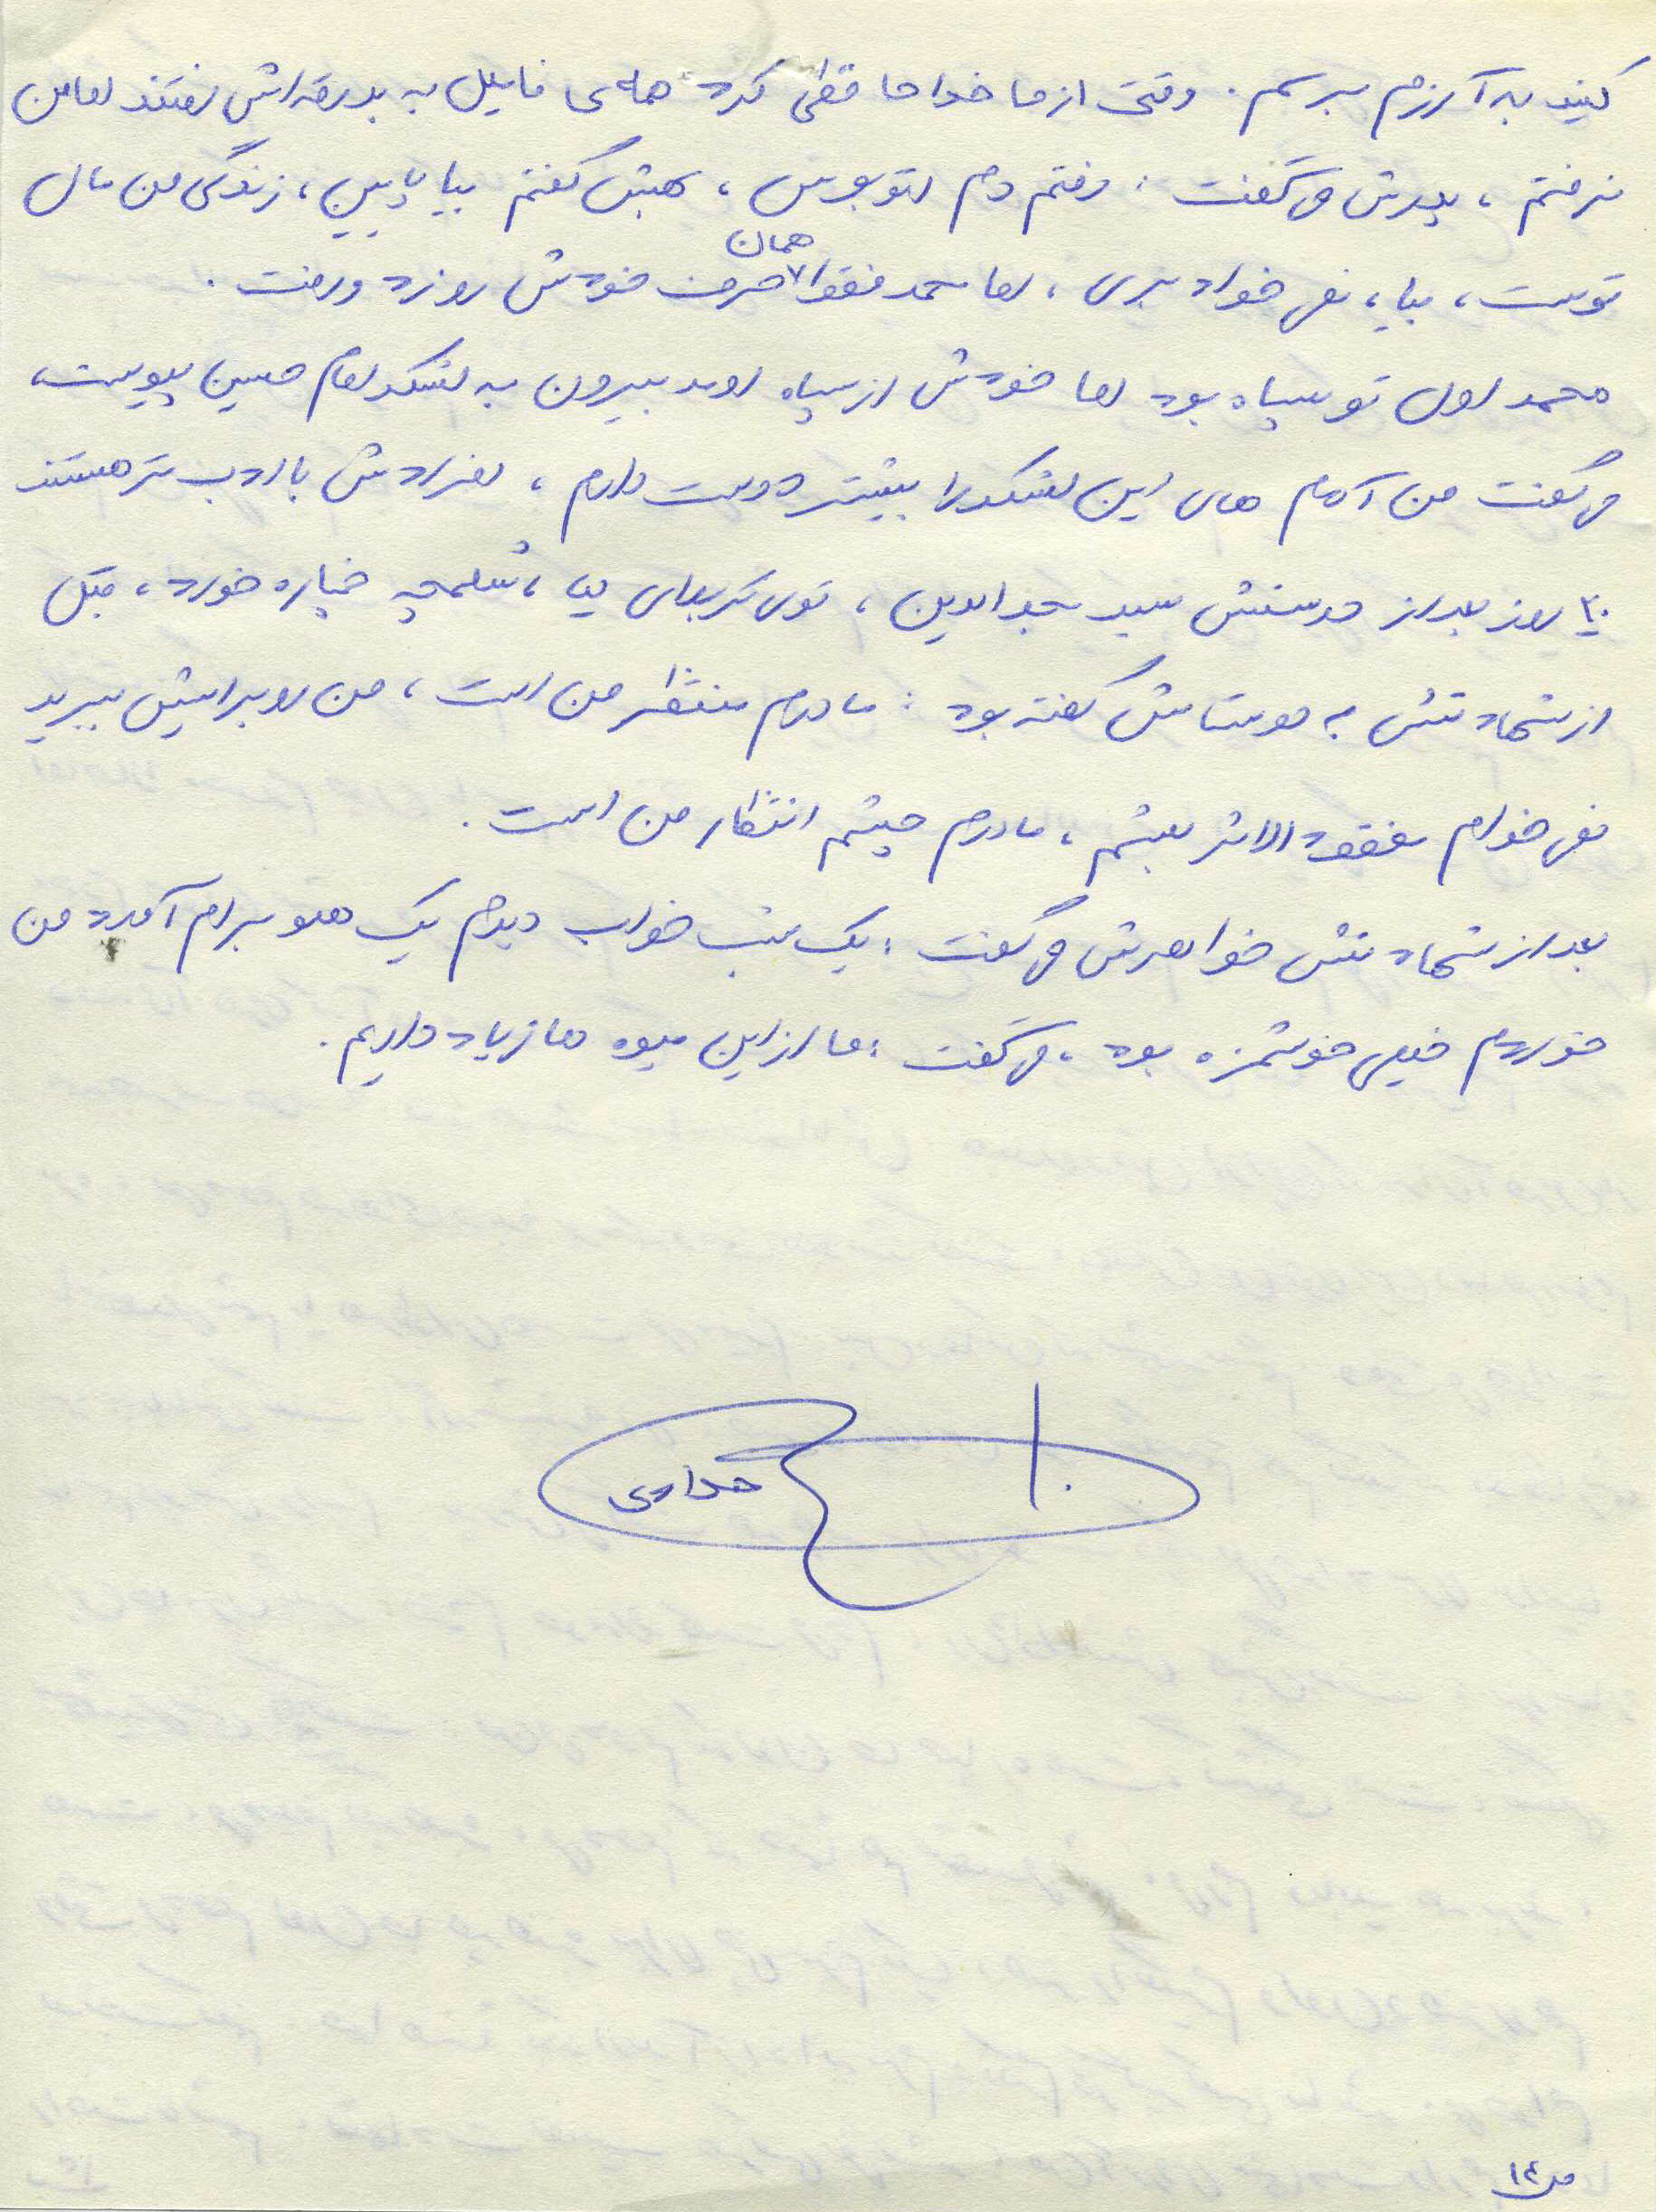 کنید به آرزوم برسم. وقتی از ما خداحافظی کرد همه‌ی فامیل به بدرقه‌اش رفتند اما من
نرفتم، پدرش می‌گفت: رفتم دم اتوبوس، بهش گفتم بیا پایین، زندگی من مال
همان
توست، بیا، نمی‌خواد بری، اما محمد فقط حرف خودش رو زد و رفت.
محمد اول تو سپاه بود اما خودش از سپاه اومد بیرون به لشکر امام حسین پیوست،
می‌گفت من آدم های این لشکر را بیشتر دوست دارم، افرادش با ادب تر هستند
۲۰ روز بعد از دوستش سید مجدالدین، توی کربلای ۵، شلمچه خمپاره خورد، قبل
از شهادتش به دوستاش گفته بود: مادرم منتظر من است، من رو براش ببرید
نمی‌خوام مفقود الاثر بشم، مادرم چشم انتظار من است.
بعد از شهادتش خواهرش می‌گفت: یک شب خواب دیدم یک هلو برام آورد من
خوردم خیلی خوشمزه بود، می‌گفت: ما از این میوه ها زیاد داریم.
ص ۱۲